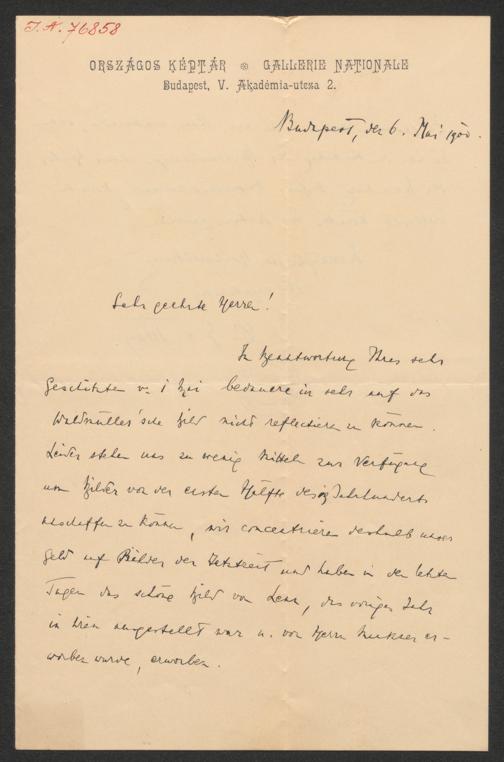 J. N. 76858
ORSZÁGOS KÉPTÁR ❊ GALLERIE NATIONALE
Budapest, V. Akadémia-utcza 2.
Budapest, der 6. Mai 1900.
Sehr geehrte Herren!
In Beantwortung Ihres sehr
Geschätzten v. 1 Mai bedauere ich sehr auf das
Waldmüller'sche Bild nicht reflectieren zu können.
Leider stehen uns zu wenig Mitteln zur Verfügung
um Bilder von der ersten Hälfte des Jahrhunderts
anschaffen zu können, wir concentriren deshalb unser
Geld auf Bilder der Jetztzeit und haben in den letzten
Tagen das schöne Bild von, das voriges Jahr
in Wien ausgestellt war u. von Herrn er-
worben wurde, erworben.